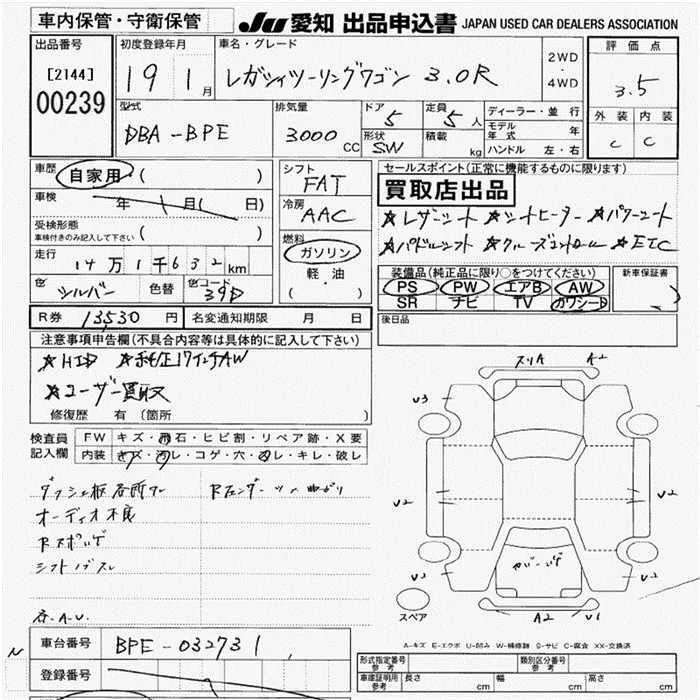 車内保管・守衛保管
JU 愛知 出品申込書 JAPAN USED CAR DEALERS ASSOCIATION
出品番号 [2144] 00239
初度登録年月 19 1月
車名・グレード レガシィツーリングワゴン 3.0R
2WD・4WD
評価点 3.5
外装 内装
C C
型式 DBA-BPE
排気量 3000 CC
ドア 5 形状 SW
定員 5人 積載 kg
ディーラー・並行
モデル年式 年
ハンドル 左・右
車歴 自家用・( )
車検 年 月( 日)
受検形態
車検付きのみ記入して下さい ( )
走行 14万1千632km
色 シルバー 色替 色コード 39D
シフト FAT
冷房 AAC
燃料 ガソリン
軽・油
( )
セールスポイント(正常に機能するものに限ります)
買取店出品
★レザーシート ★シートヒーター ★パワーシート
★パドルシフト ★クルーズコントロール ★ETC
装備品(純正品に限り○をつけてください)
PS PW エアB AW
SR ナビ TV カワシート
新車保証書
後日品
R券 13,530円 名変通知期限 月 日
注意事項申告欄(不具合内容等は具体的に記入して下さい)
★HID ★純正17インチAW
★ユーザー買取
修復歴 有(箇所 )
検査員記入欄
FW キズ・飛石・ヒビ割・リペア跡・X要
内装 キズ・汚レ・コゲ・穴・スレ・キレ・破レ
オーディオ不良
各A.U.
スリA A2
U3
U2 U2
U3 U3
スペア A2 U1
A-キズ E-エクボ U-凹み W-補修跡 S-サビ C-腐食 XX-交換済
車台番号 BPE-032731
登録番号
型式指定番号 参考 類別区分番号 参考
車庫証明用 参考 長さ cm 幅 cm 高さ cm